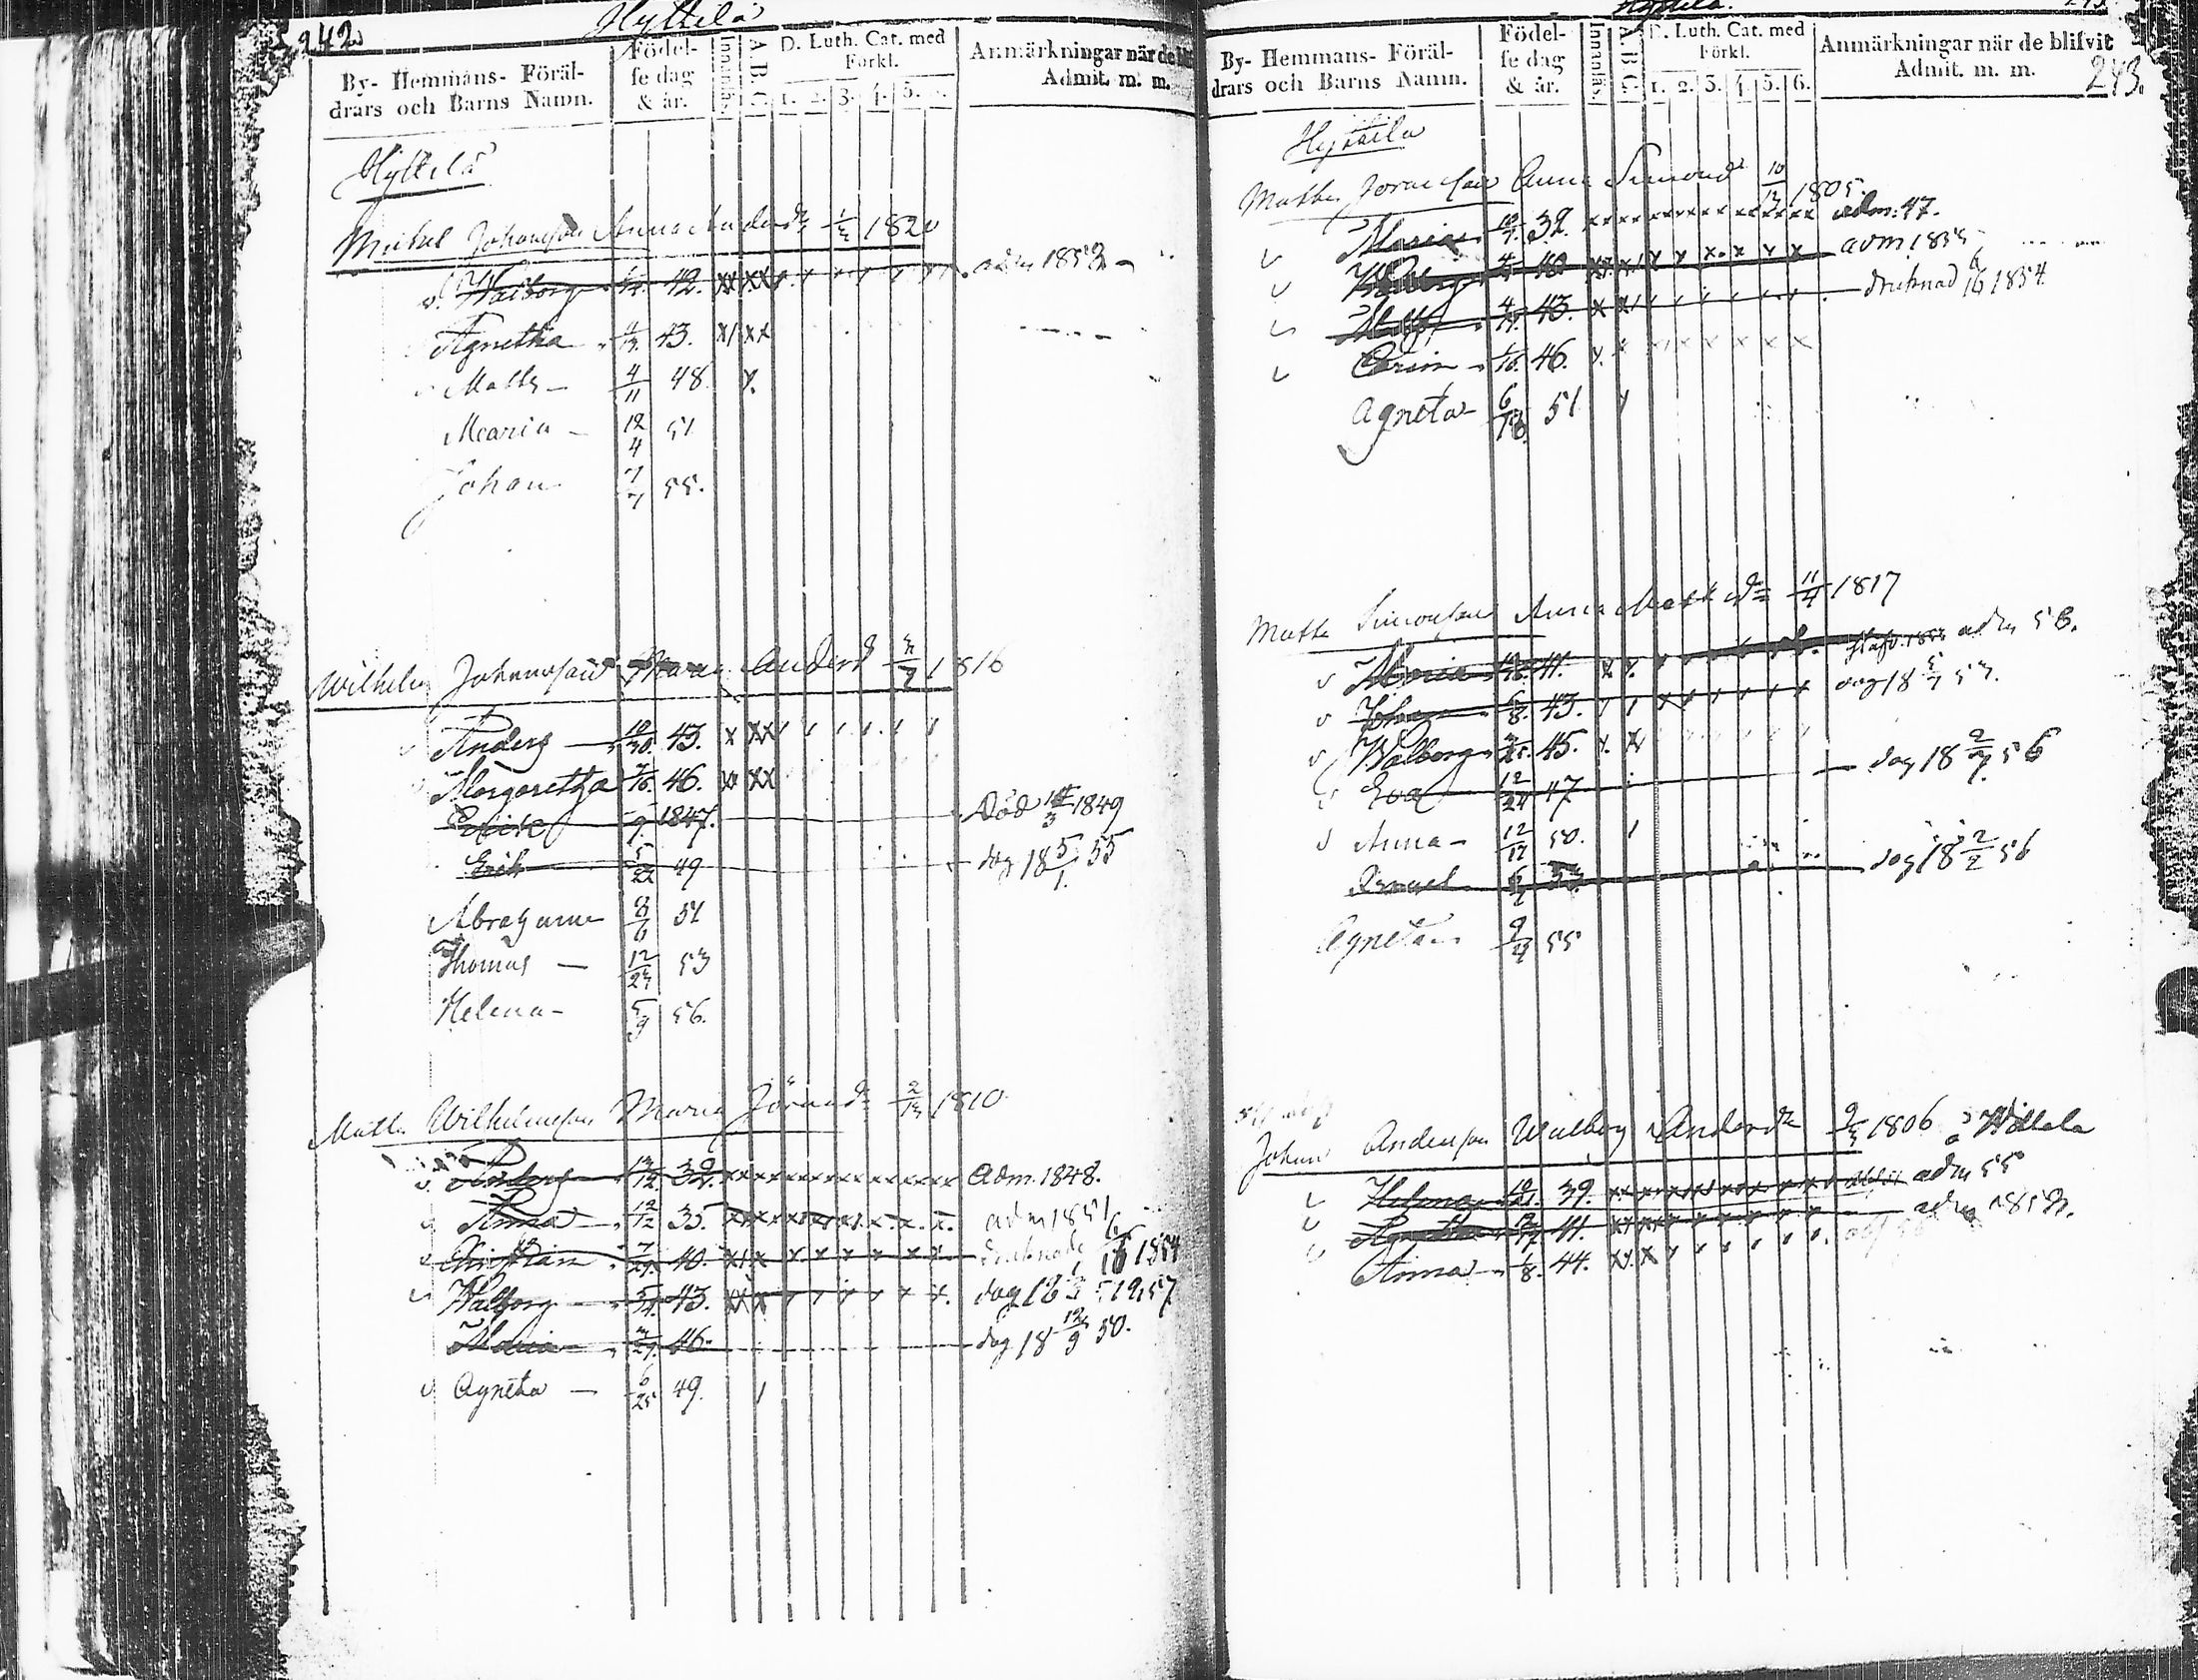 242
Hyttilä
By- Hemmans- Föräl-
drars och Barns Namn.
Födel-
se dag
& år.
Innanläs.
A.B.C.
D. Luth. Cat. med
Förkl.
1. 2. 3. 4. 5.
Anmärkningar när de
Admit. m. m.
Hyttilä
Mickel Johansson Anna Andersd 1820
Walborg 42. adm 1858
Agnetha 43.
Matts 4/11 48
Maria 12/4 51
Johan 7/7 55.
Wilhelm Johansson Maria Andersd 1816
Anders 43.
Margaretha 46.
1847. Död 1849
Erik 5/22 49 dog 18 5/1 55
Abraham 8/6 51
Thomas 12/23 53
Helena 5/9 56.
Matts Wilhelmsson Maria Göransd 1810
Anders 32. Adm. 1848.
Anna 12/12 35. adm 1851
Christian 7/21 40. druknade 6/16 1854
Walborg 43. dog 57
Maria 46. dog 18 12/9 50.
Agneta 6/25 49.
Hyttilä
243.
By- Hemmans- Föräl-
drars och Barns Namn.
Födel-
se dag
& år.
Innanläs.
A.B.C.
D. Luth. Cat. med
Förkl.
1. 2. 3. 4. 5. 6.
Anmärkningar när de blifvit
Admit. m. m.
Hyttilä
Matts Göransson Anna Simonsd 10/12 1805.
Maria 32. adm: 47.
Walborg 40 adm 1855
43. druknad 6/16 1854.
Carin 1/16. 46.
Agneta 6/16 51
Matts Simonsson Anna Mattsd 11/4 1817
Maria 41. adm 58.
Johan 6/8. 43. dog 18 5/7 57.
Walborg 45.
Eva 12/24 47 dog 18 2/7 56
Anna 12/17 50.
53 dog 18 2/2 56
Agneta 55
Johan Andersson Walborg Andersd 1806 å
Helena 39. adm 55
Agnetha 41. adm
Anna 1/8. 44.